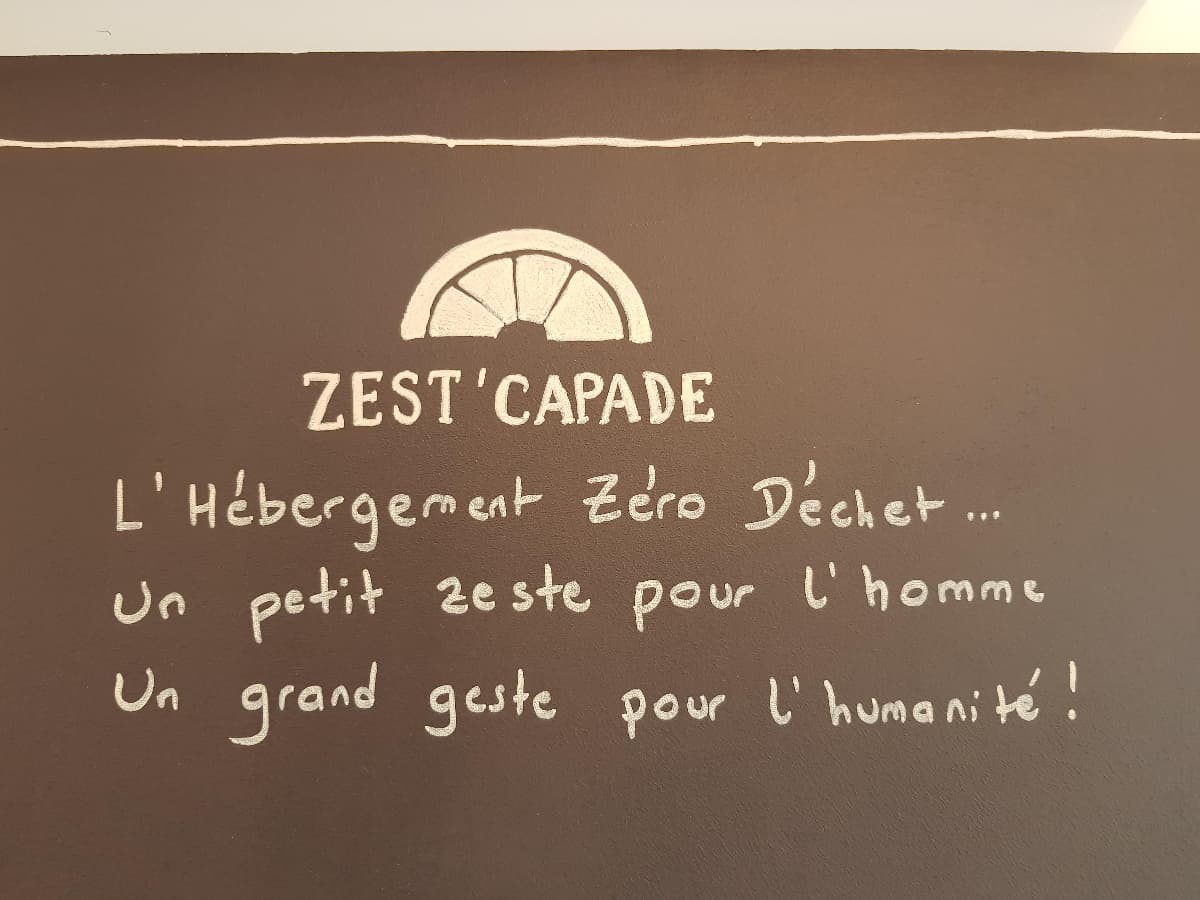 ZEST'CAPADE
L'Hébergement Zéro Déchet...
Un petit zeste pour l'homme
Un grand geste pour l'humanité !